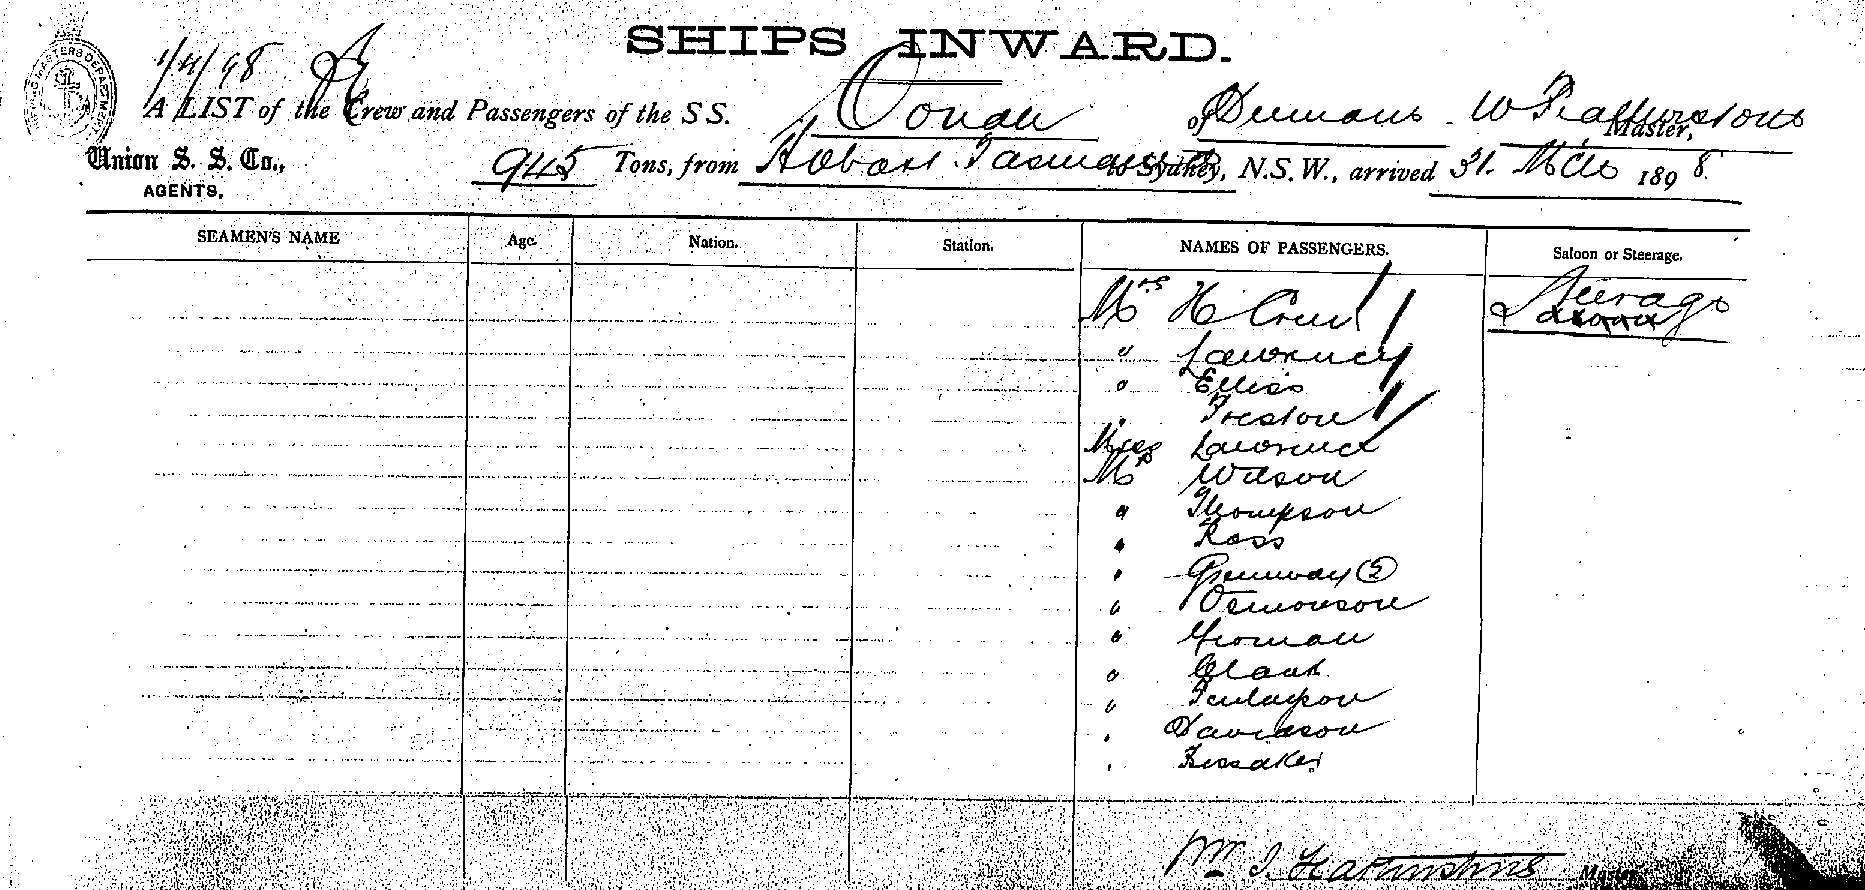 SHIPS INWARD.
1/4/98
A LIST of the Crew and Passengers of the S S. Oonah of Dunedin. W Featherstone Master,
Union S. S. Co.,
AGENTS,
945 Tons, from Hobart Tasmania to Sydney, N.S.W., arrived 31. Mch 1898.
SEAMEN'S NAME Age. Nation. Station. NAMES OF PASSENGERS. Saloon or Steerage.
Mrs H Steerage
" Lawrence
" Ellis
" Preston
Miss Lawrence
Mr Wilson
" Thompson
" Ross
" Greenway (2)
"
"
" Clark
"
" Davidson
"
Wm J. Featherstone Master